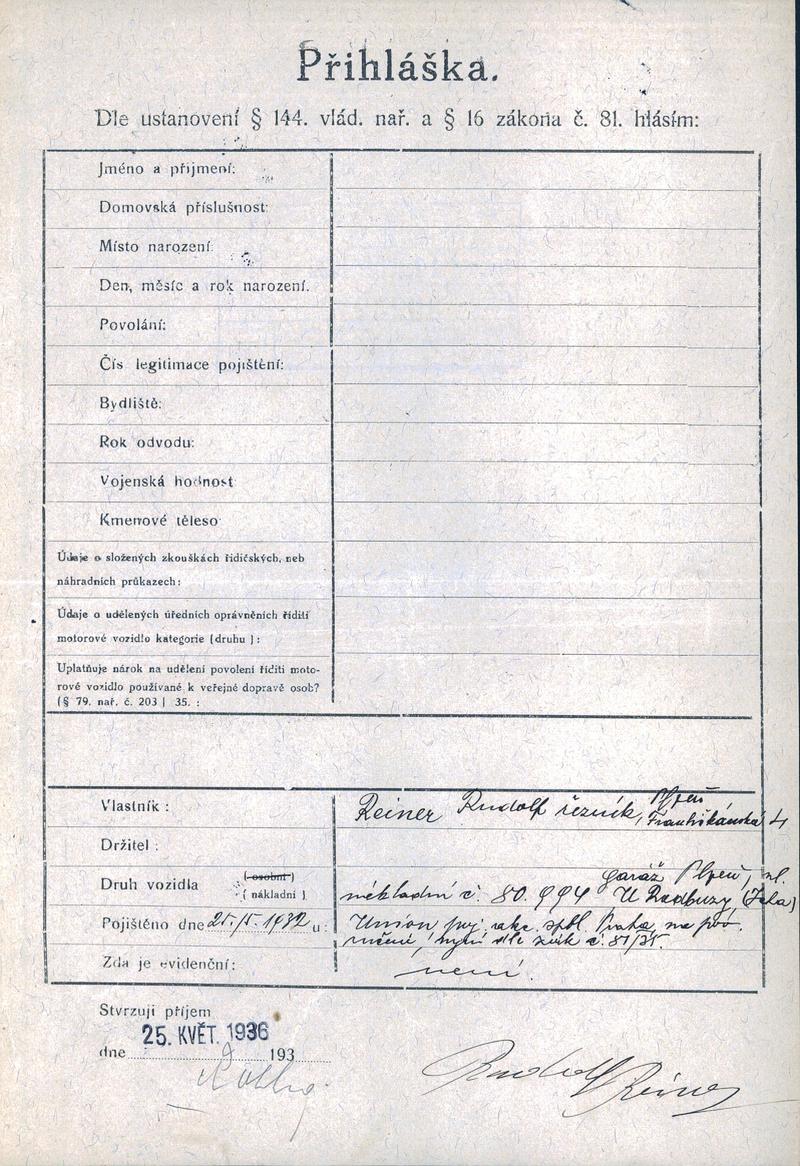 Přihláška.
Dle ustanovení § 144. vlád. nař. a § 16 zákona č. 81. hlásím:
Jméno a přijmení:
Domovská příslušnost:
Místo narození:
Den, měsíc a rok narození.
Povolání:
Čís legitimace pojištění:
Bydliště:
Rok odvodu:
Vojenská hodnost
Kmenové těleso
Údaje o složených zkouškách řidičských, neb
náhradních průkazech:
Údaje o udělených úředních oprávněních říditi
motorové vozidlo kategorie (druhu):
Uplatňuje nárok na udělení povolení říditi moto-
rové vozidlo používané k veřejné dopravě osob?
(§ 79. nař. č. 203 | 35. :
Vlastník: Reiner Rudolf řezník, Plzeň
Františkánská 4
Držitel:
Druh vozidla (osobní) garáž Plzeň, ul.
(nákladní) nákladní č. 80.994 U Radbuzy
Pojištěno dne 25./5. 1932 u: Union poj. akc. spol. Praha, na pov.
ručení, nyní dle zák č. 81/35.
Zda je evidenční: není.
Stvrzuji příjem
25. KVĚT. 1936
dne 193
Rudolf Reiner